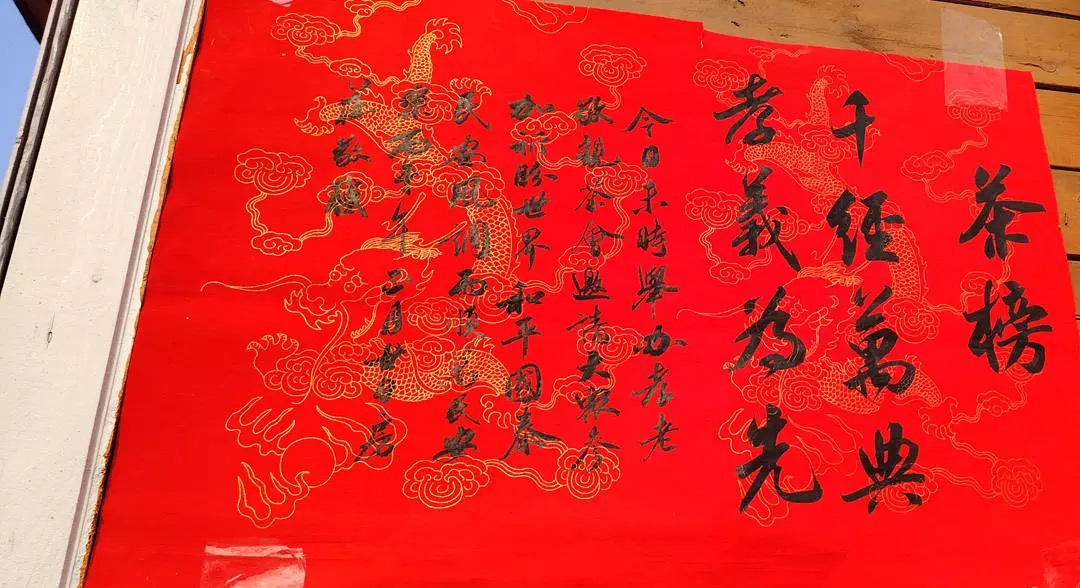 茶榜
千經萬典
孝義為先
今日未時舉办孝老
敬親茶會邀請大衆参
加祈盼世界和平國泰
民安風調雨順民安
年二月廿
敬